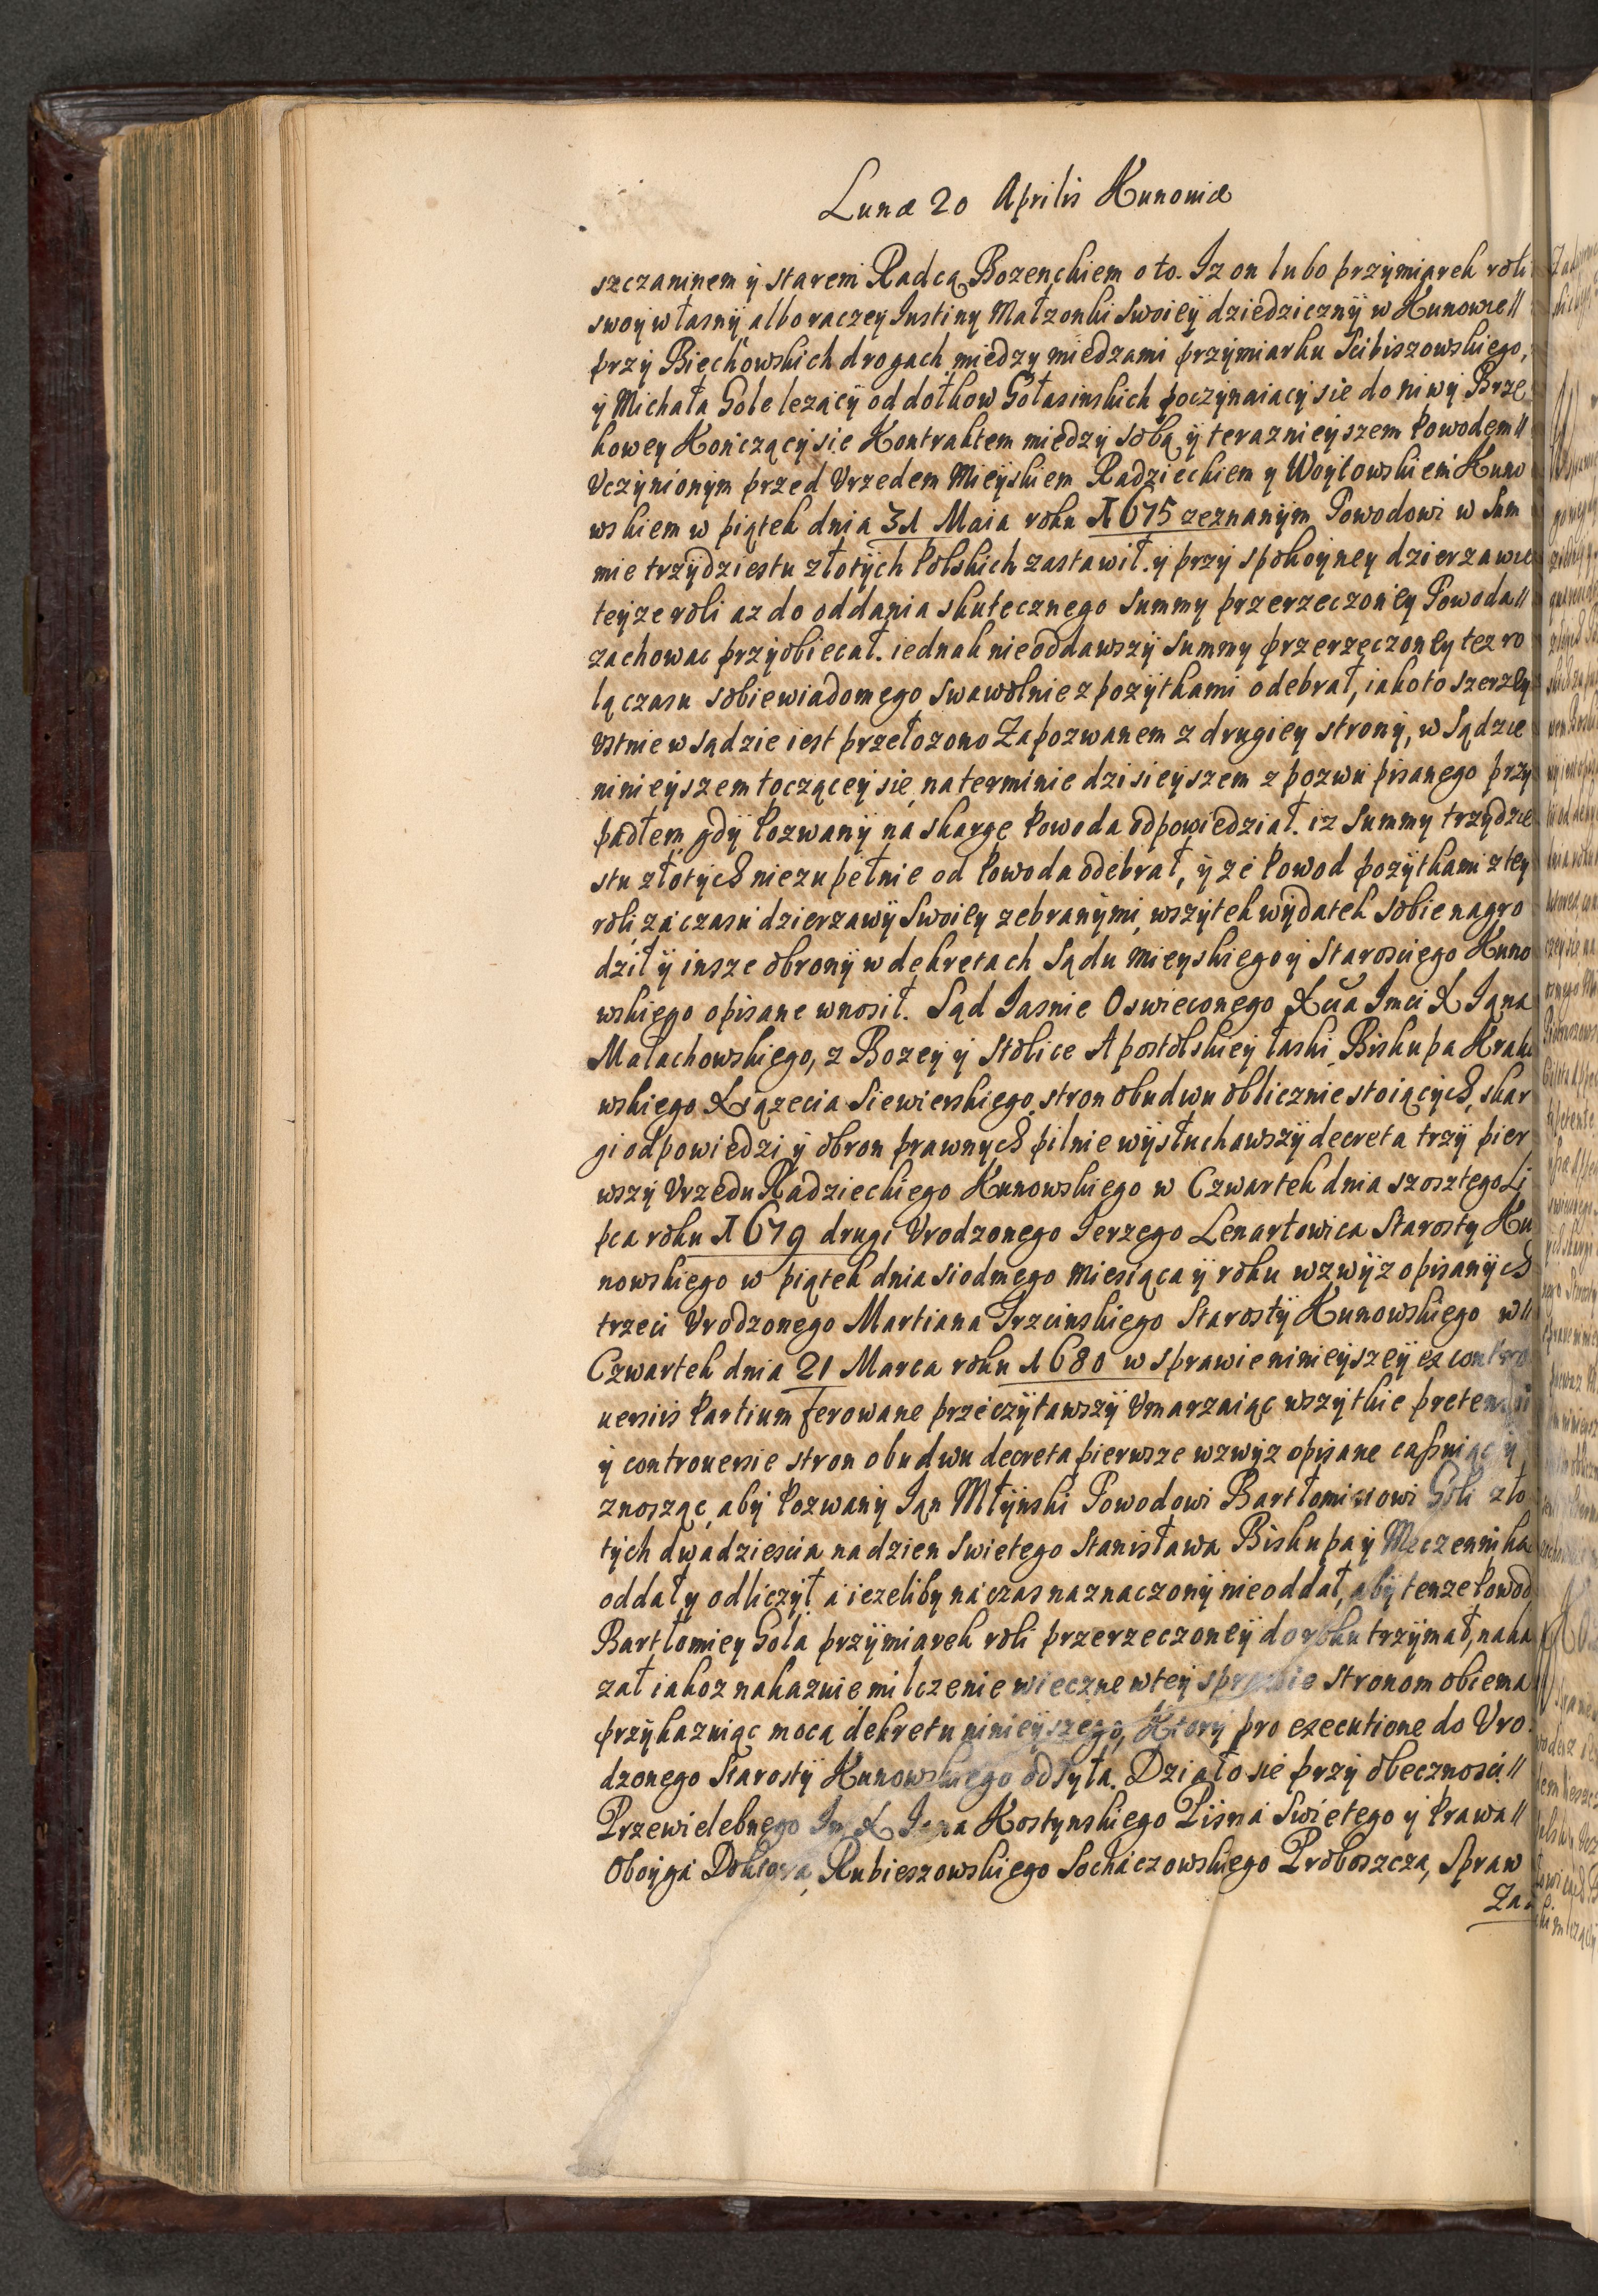 Lunæ 20 Aprilis Kunoviæ
szczaninem ÿ starem Radcą Bozenckiem o to. Iz on lubo przÿmiarek roli
swoÿ własnÿ albo raczey Iustiny Małzonki Swoieÿ dziedzicznÿ w Kunowie //
przÿ Biechowskich drogach miedzy miedzami przÿmiarku Scibiszowskiego,
ÿ Michała Gole lezącÿ od dołkow Gołasinskich poczÿnaiacÿ sie do niwÿ Brze
kowey Kończącÿ sie Kontraktem miedzÿ sobą ÿ teraznieÿszem Powodem //
Vczÿnionÿm przed Vrzedem Mieÿskiem Radzieckiem y Woÿtowskiem Kuno
wskiem w piątek dnia 31 Maia roku 1675 zeznanÿm Powodowi w Sum
mie trzÿdziestu złotÿch Polskich zastawił. ÿ przÿ spokoÿney dzierzawie
teÿze roli az do oddania skutecznego Summy przerzeczoneÿ Powoda //
zachowac przÿobiecał. iednak nieoddawszÿ Summy przerzeczoneÿ tez ro
lą czasu sobie wiadomego swawolnie z pozÿtkami odebrał, iako to szerzeÿ
Vstnie w sądzie iest przełozono Zapozwanem z drugiey stronÿ, w Sądzie
ninieÿszem toczącey sie, na terminie dzisieÿszem z pozwu pisanego przÿ
padłem gdÿ Pozwanÿ na skarge Powoda odpowiedział. iz Summy trzÿdzie
stu złotÿch niezupełnie od Powoda odebrał, ÿ ze Powod pozÿtkami z teÿ
roli za czasu dzierzawÿ Swoieÿ zebranÿmi, wszÿtek wÿdatek sobie nagro
dził ÿ insze obronÿ w dekretach Sądu Mieyskiego ÿ Starosciego Kuno
wskiego opisane wnosił. Sąd Iasnie Oswieconego Xcia Imci X Iana
Małachowskiego, z Bozeÿ ÿ Stolice Apostolskieÿ łaski Biskupa Krako
wskiego Xiązecia Siewierskiego, stron obudwu oblicznie stoiącÿch, skar
gi odpowiedzi ÿ obron prawnÿch pilnie wÿsłuchawszÿ decreta trzÿ pier
wszÿ Vrzedu Radzieckiego Kunowskiego w Czwartek dnia szosztego Li
pca roku 1679 drugi Vrodzonego Ierzego Lenartowica Starosty Ku
nowskiego w piątek dnia siodmego miesiąca ÿ roku wzwÿz opisanÿch
trzeci Vrodzonego Martiana Trzcinskiego Starostÿ Kunowskiego w //
Czwartek dnia 21 Marca roku 1680 w sprawie ninieÿszeÿ ex contro
uersiis Partium ferowane przeczÿtawszÿ Vmarzaiąc wszÿtkie pretensÿi
ÿ controuersie stron obudwu decreta pierwsze wzwÿz opisane cassuiąc ÿ
znosząc, abÿ Pozwanÿ Ian Młÿnski Powodowi Bartłomieiowi Goli zło
tÿch dwadziescia na dzien Swietego Stanisława Biskupa ÿ Meczennika
oddał y odliczÿł. a iezeliby na czas naznaczonÿ nie oddał, abÿ tenze Powod
Bartłomieÿ Gola przÿmiarek roli przerzeczoneÿ do roku trzÿmał, naka
zał iakoz nakazuie milczenie wieczne w teÿ sprawie stronom obiema
przÿkazuiąc mocą dekretu ninieÿszego, Ktorÿ pro executione do Vro
dzonego Starostÿ Kunowskiego odsÿła. Działo sie przÿ obecznosci //
Przewielebnego Im X Iana Kostynskiego Pisma Swietego ÿ Prawa //
Oboyga Doktora, Rubieszowskiego Sochaczowskiego Proboszcza, Spraw
Za